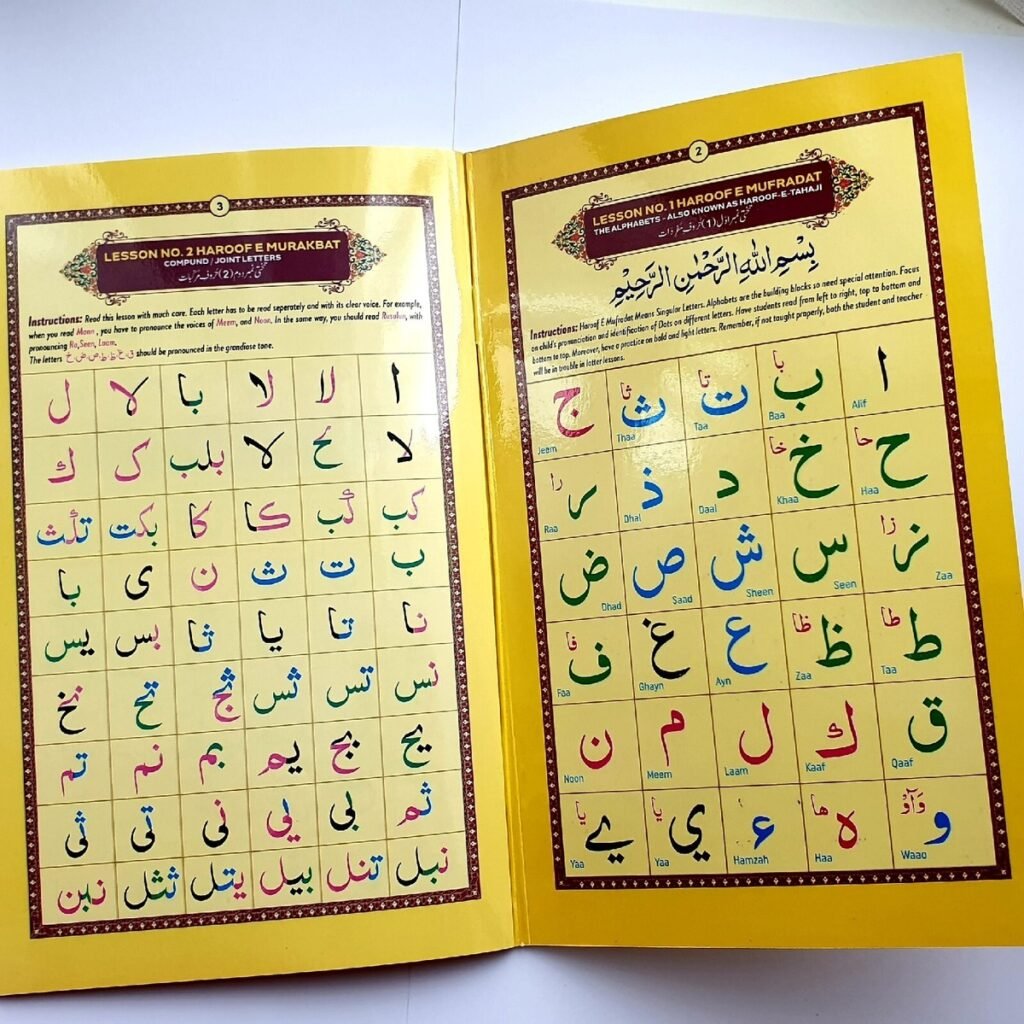 2
LESSON NO. 1 HAROOF E MUFRADAT
THE ALPHABETS - ALSO KNOWN AS HAROOF-E-TAHAJI
تختی نمبر اوّل (1) حُروف مُفرَدَات
بِسْمِ اللهِ الرَّحْمٰنِ الرَّحِيْمِ
Instructions: Haroof E Mufradat Means Singular Letters. Alphabets are the building blocks so need special attention. Focus
on child's pronunciation and identification of Dots on different letters. Have students read from left to right, top to bottom and
bottom to top. Moreover, have a practice on bold and light letters. Remember, if not taught properly, both the student and teacher
will be in trouble in latter lessons.
ا ب با ت تا ث ثا ج
Alif Baa Taa Thaa Jeem
ح حا خ خا د ذ ر را
Haa Khaa Daal Dhal Raa
ز زا س ش ص ض
Zaa Seen Sheen Saad Dhad
ط طا ظ ظا ع غ ف فا
Taa Zaa Ayn Ghayn Faa
ق ك ل م ن
Qaaf Kaaf Laam Meem Noon
و وَآوْ ه ها ء ي يا ے يا
Waao Haa Hamzah Yaa Yaa
3
LESSON NO. 2 HAROOF E MURAKBAT
COMPUND / JOINT LETTERS
تختی نمبر دوم (2) حُروف مُرَکبات
Instructions: Read this lesson with much care. Each letter has to be read seperately and with its clear voice. For example,
when you read Mann , you have to pronounce the voices of Meem, and Noon. In the same way, you should read Rusulun, with
pronouncing Ra,Seen, Laam.
The letters خ،ص،ض،ط،ظ،غ،ق should be pronounced in the grandiose tone.
ا لا لا با لا ل
لا لا بلب ک ك
كب كا كا بكت
ب ت ث ن ى با
نا تا يا ثا بس يس
نس تس ثس ثج تح نخ
يح بج يم بم نم تم
ثم بى يى نى تى ثى
نبل تنل بيل يتل ثثل نبن